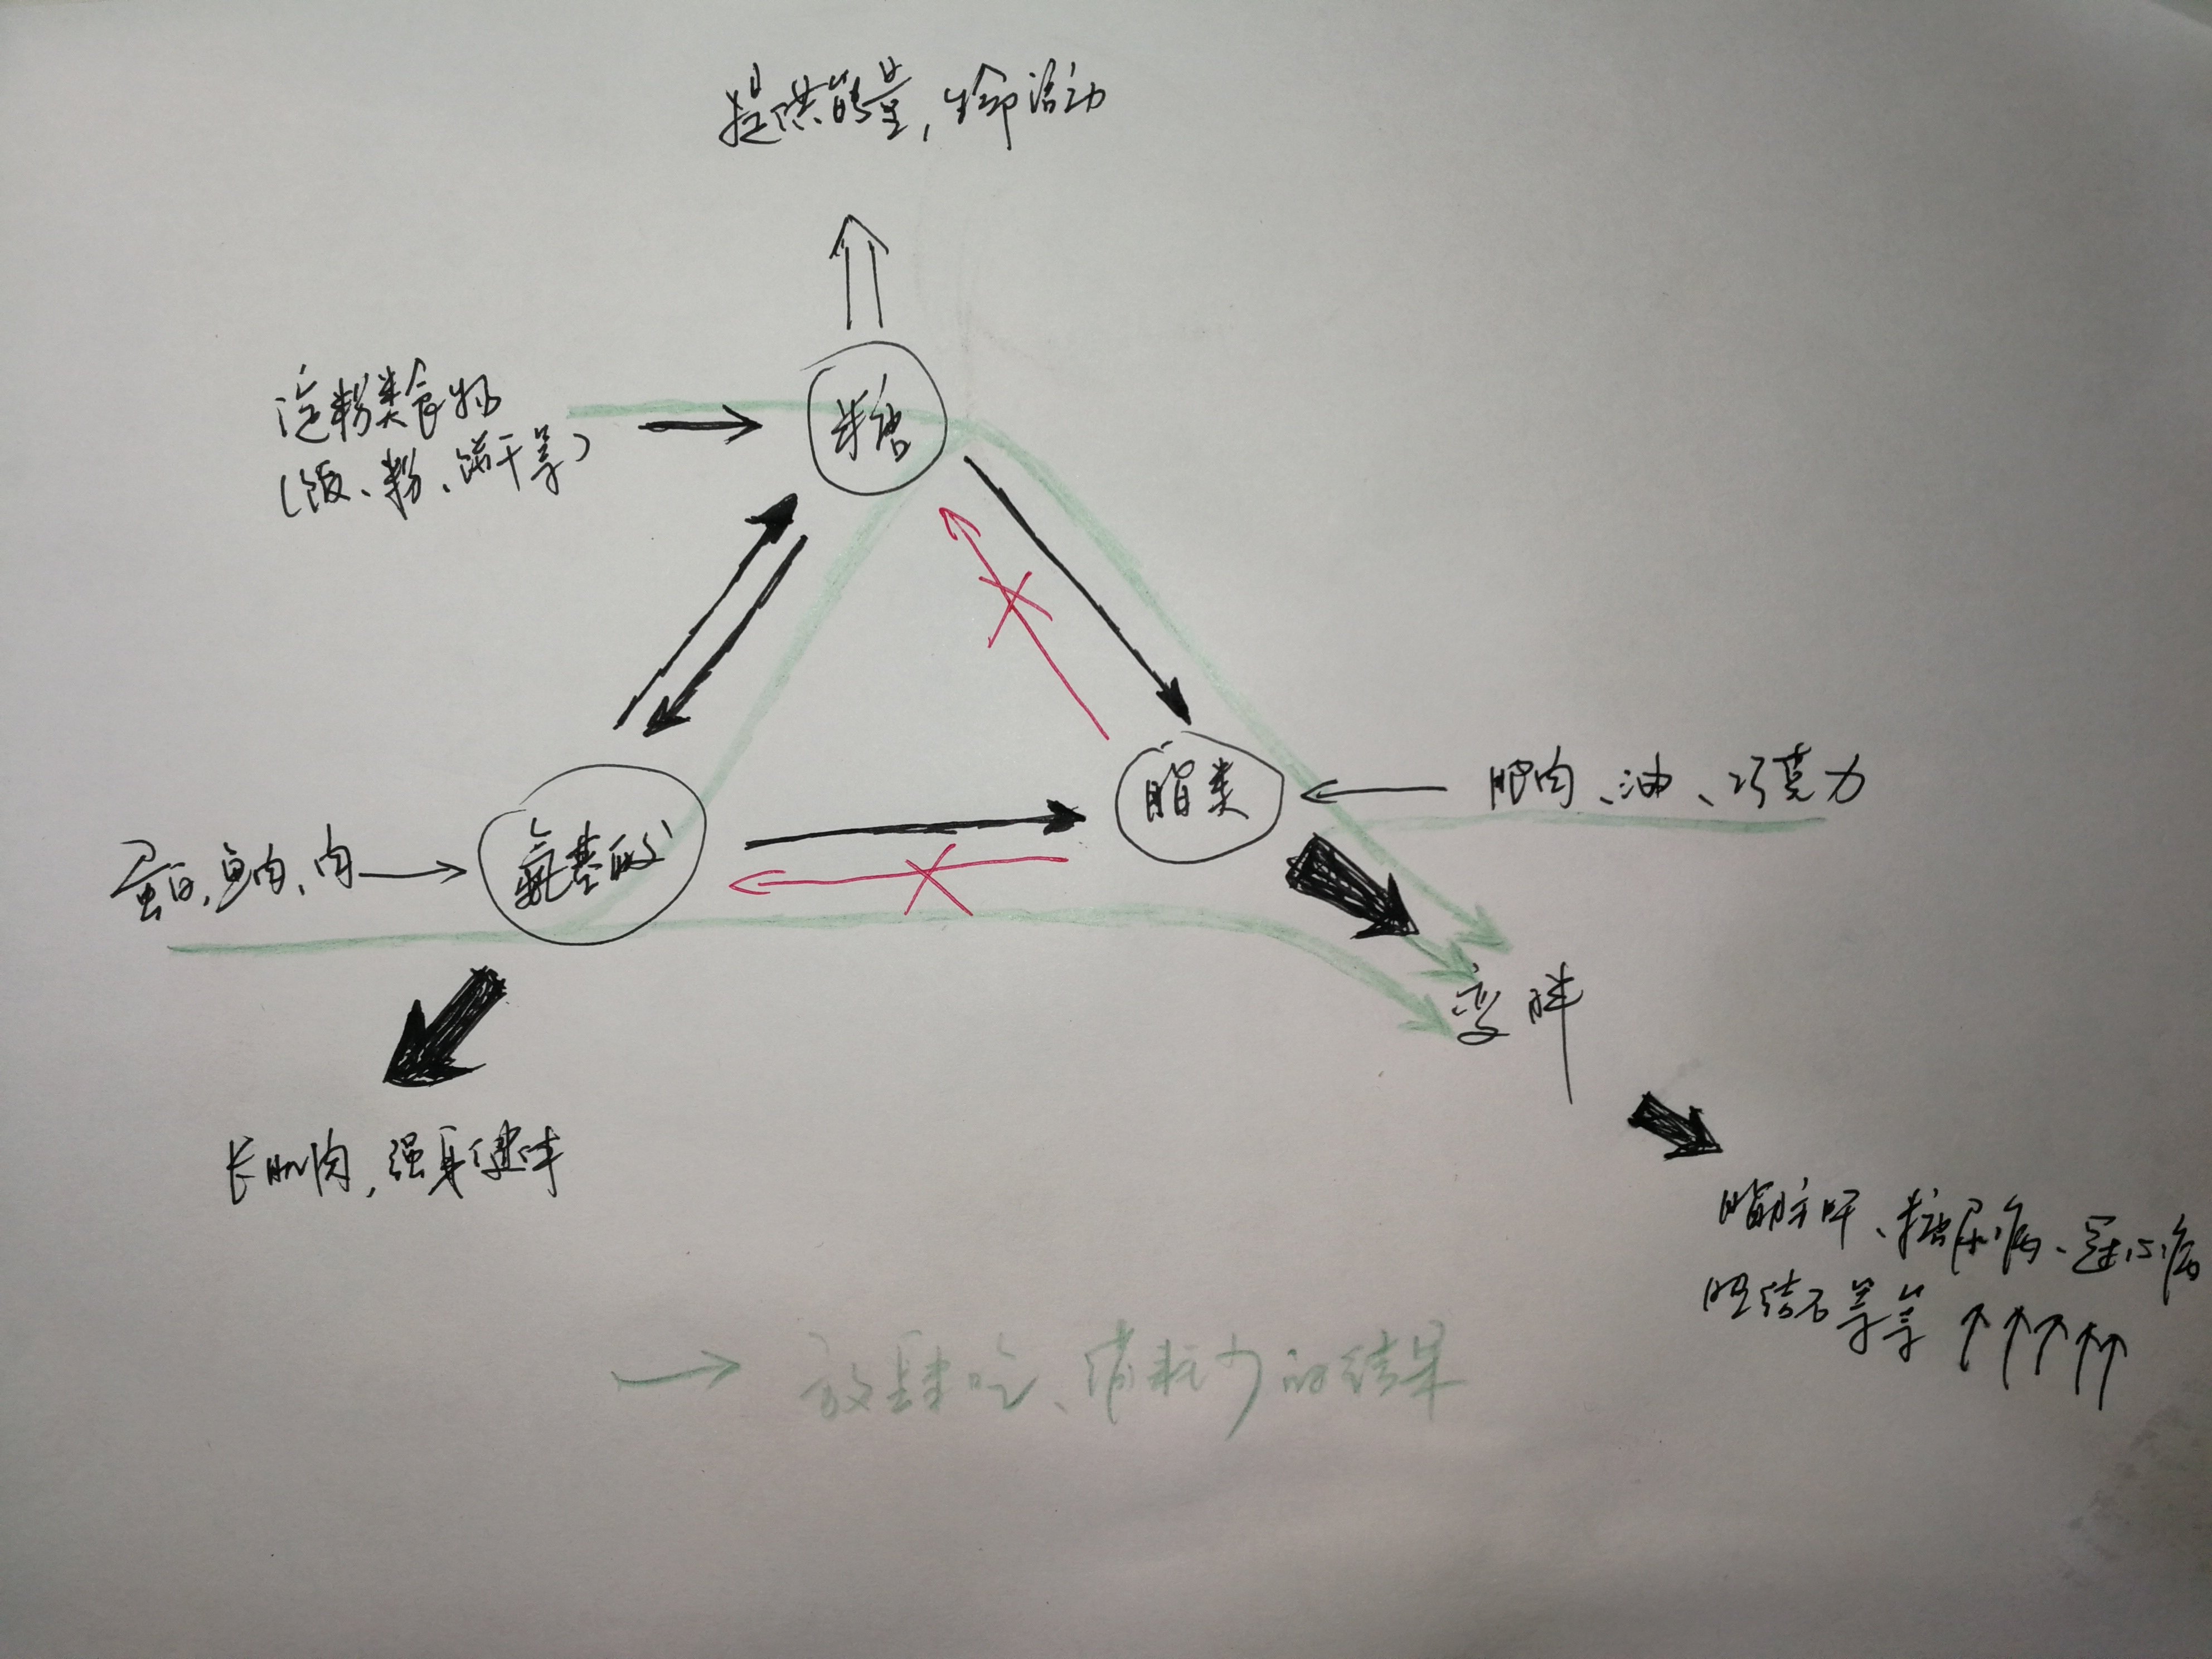 提供能量,生命活动
淀粉类食物
(饭、粉、饼干等)
糖
脂类
肥肉、油、巧克力
氨基酸
蛋白,鱼肉,肉
变胖
长肌肉,强身健体
脂肪肝、糖尿病、冠心病
胆结石等等 ↑↑↑↑↑
→ 放肆吃、消耗少的结果